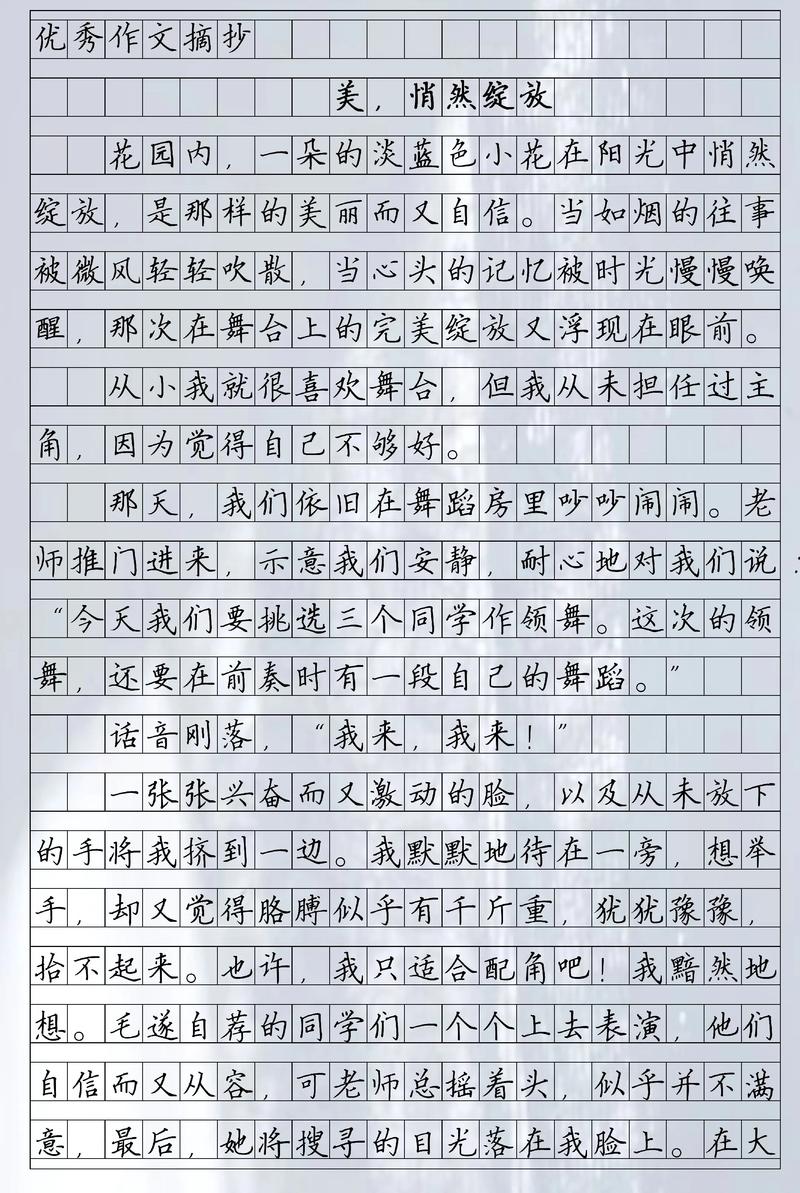 优秀作文摘抄
美，悄然绽放
花园内，一朵的淡蓝色小花在阳光中悄然
绽放，是那样的美丽而又自信。当如烟的往事
被微风轻轻吹散，当心头的记忆被时光慢慢唤
醒，那次在舞台上的完美绽放又浮现在眼前。
从小我就很喜欢舞台，但我从未担任过主
角，因为觉得自己不够好。
那天，我们依旧在舞蹈房里吵吵闹闹。老
师推门进来，示意我们安静，耐心地对我们说：
“今天我们要挑选三个同学作领舞。这次的领
舞，还要在前奏时有一段自己的舞蹈。”
话音刚落，“我来，我来！”
一张张兴奋而又激动的脸，以及从未放下
的手将我挤到一边。我默默地待在一旁，想举
手，却又觉得胳膊似乎有千斤重，犹犹豫豫，
抬不起来。也许，我只适合配角吧！我黯然地
想。毛遂自荐的同学们一个个上去表演，他们
自信而又从容，可老师总摇着头，似乎并不满
意，最后，她将搜寻的目光落在我脸上。在大